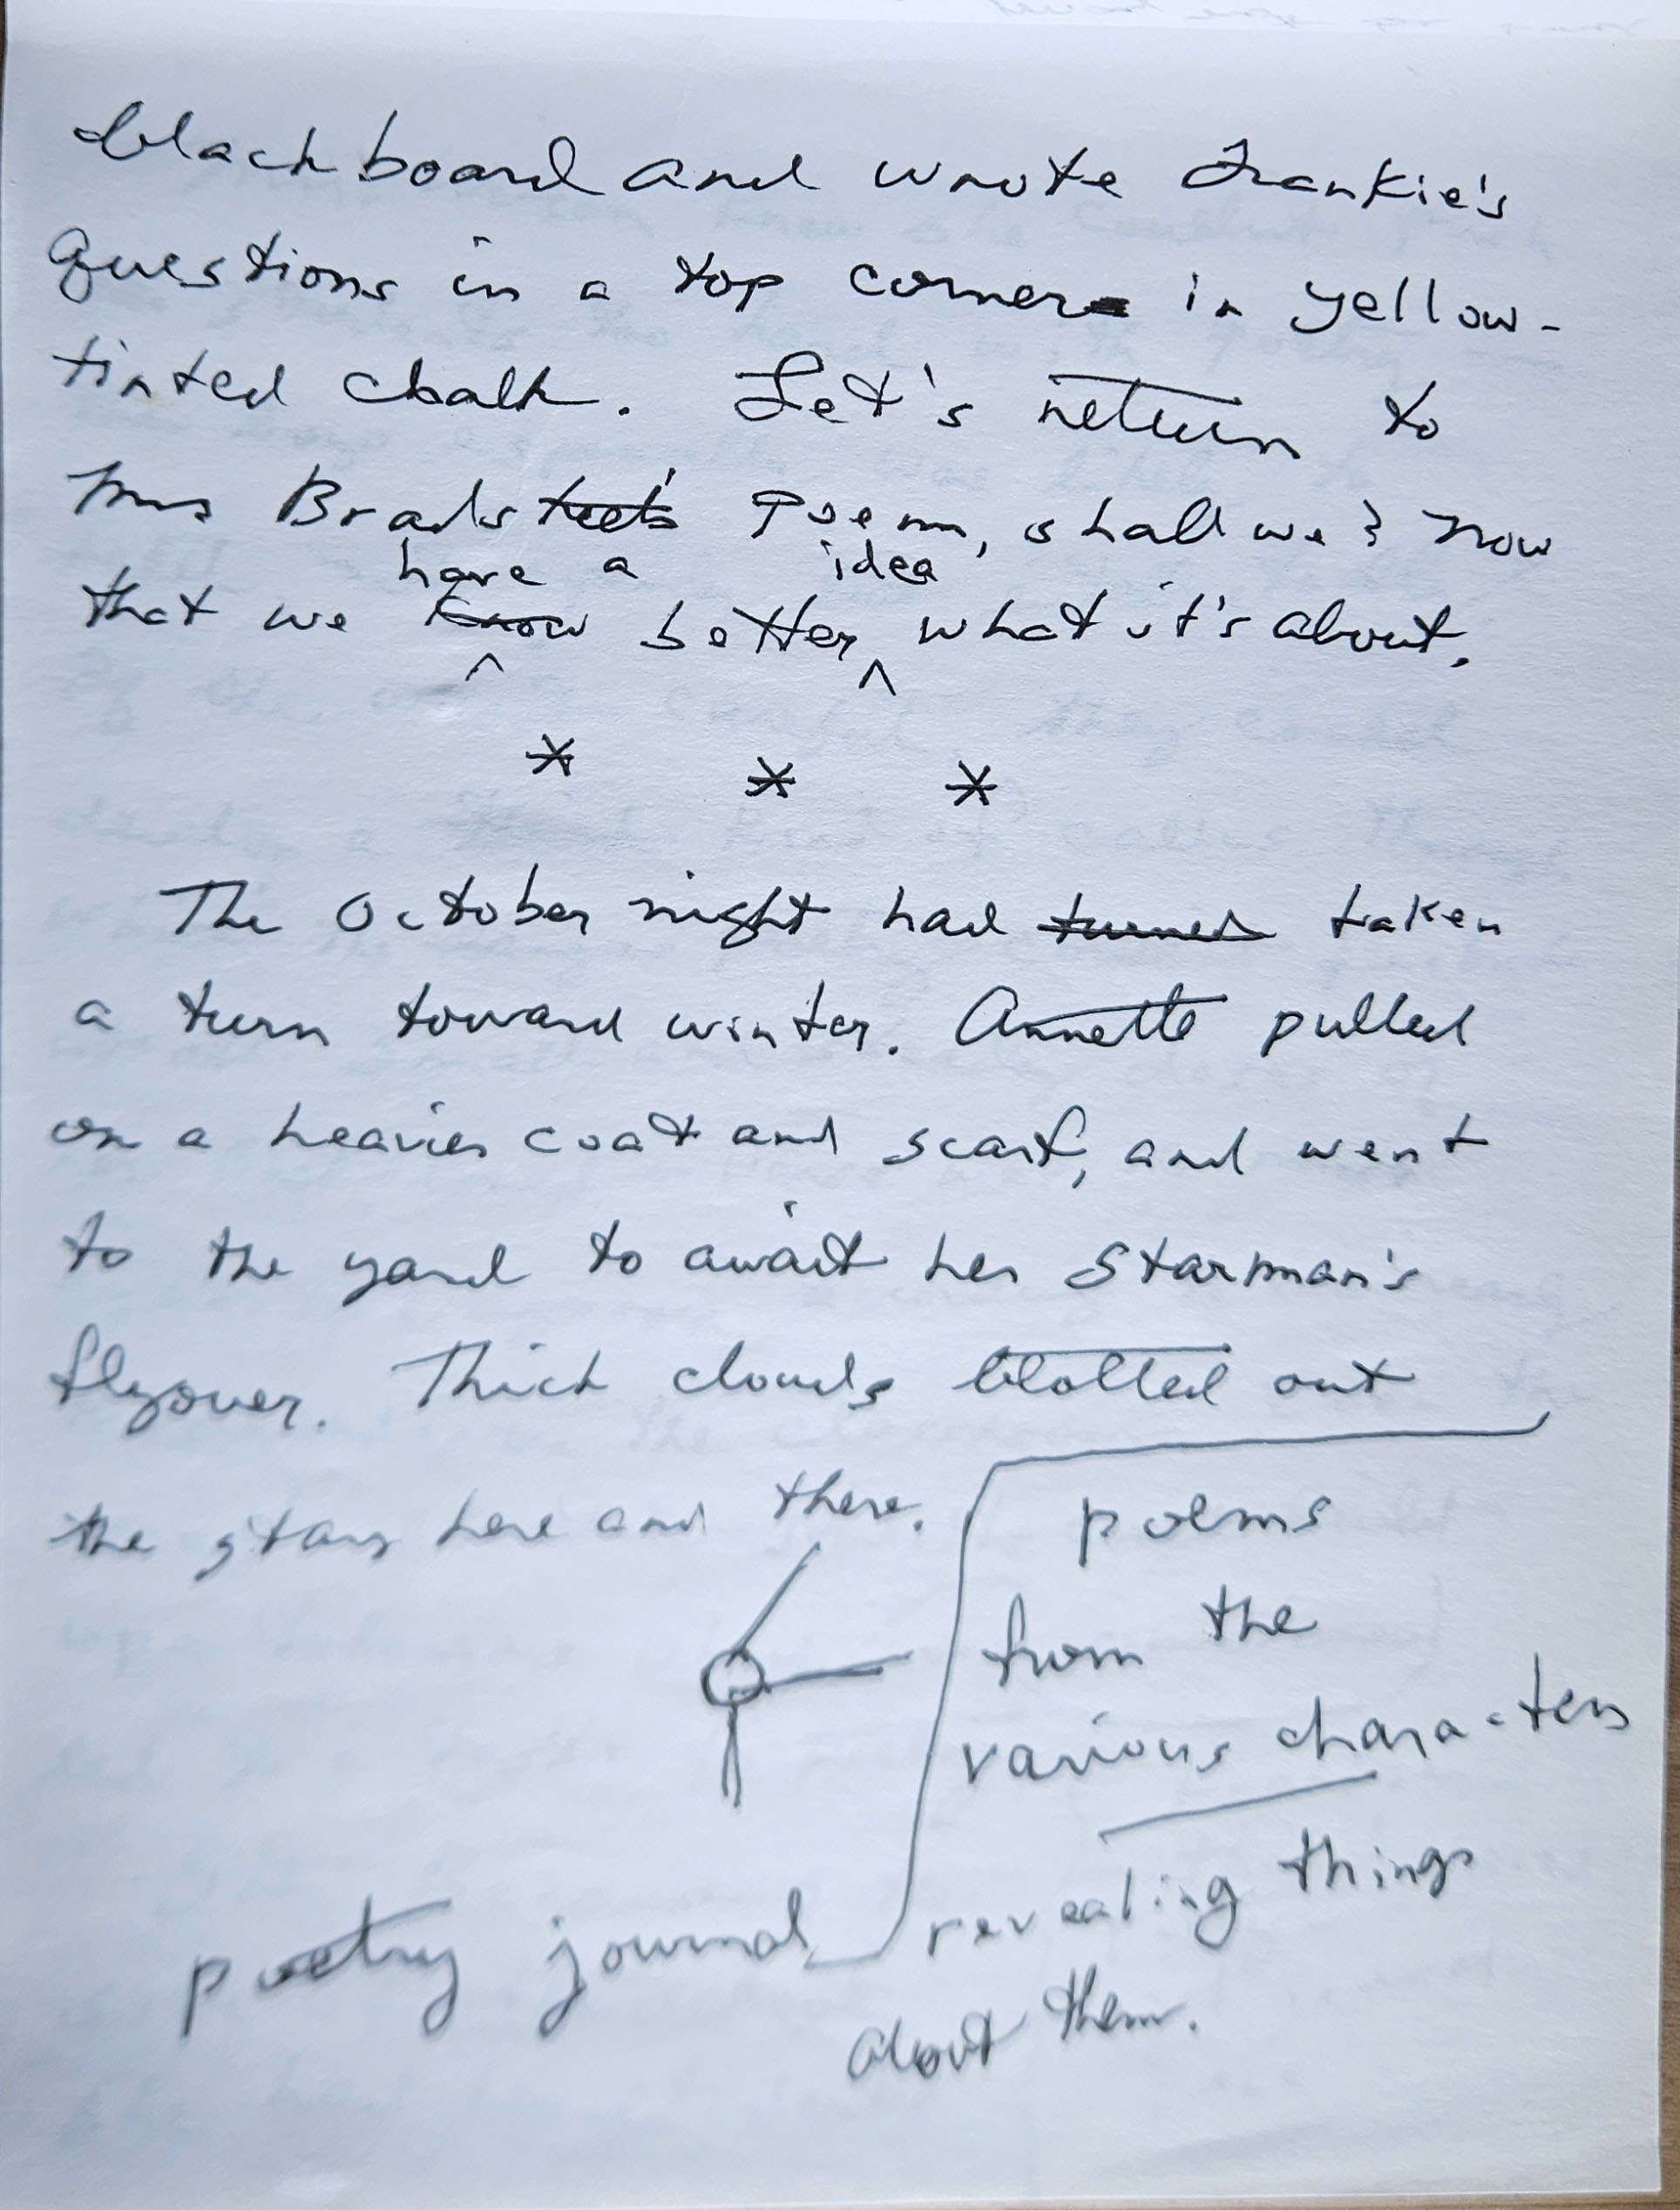 blackboard and wrote Frankie's
questions in a top corner in yellow-
tinted chalk. Let's return to
Mrs Bradstreet's Poem, shall we? Now
have a idea
that we know better what it's about.
* * *
The October night had turned taken
a turn toward winter. Annette pulled
on a heavier coat and scarf, and went
to the yard to await her Starman's
flyover. Thick clouds blotted out
the stars here and there.
poems
from the
various characters
revealing things
about them.
poetry journal